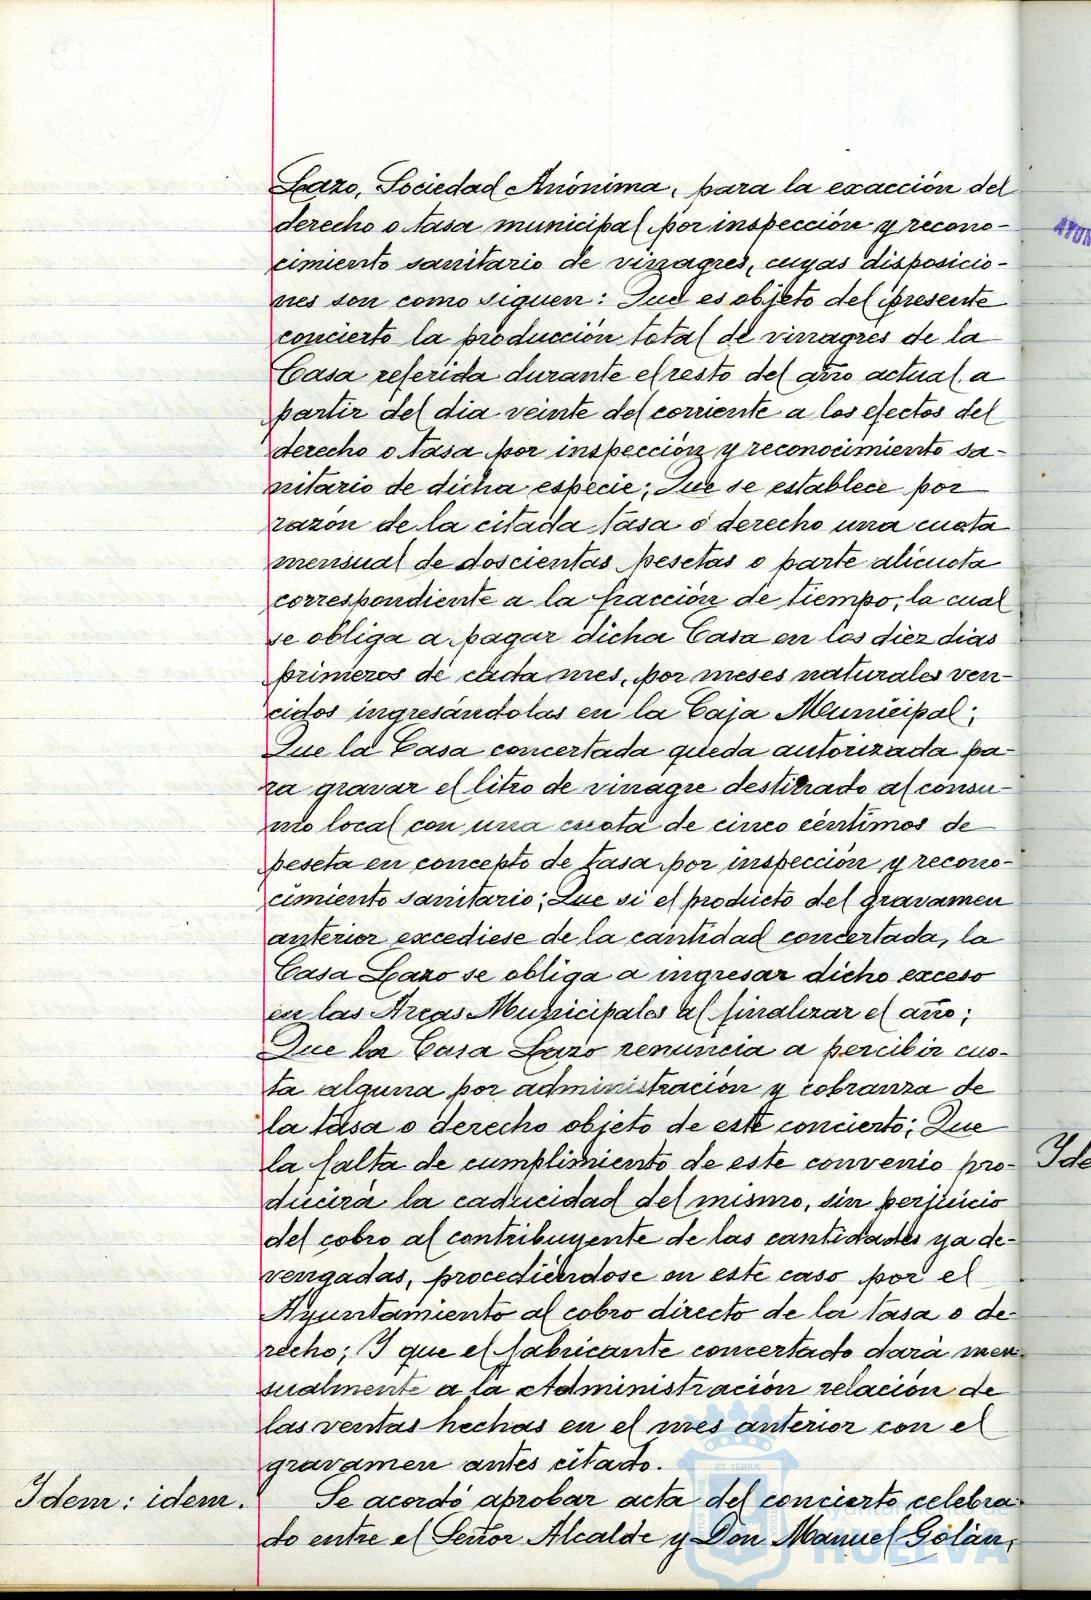 Lazo, Sociedad Anónima, para la exacción del
derecho o tasa municipal por inspección y recono-
cimiento sanitario de vinagres, cuyas disposicio-
nes son como siguen: Que es objeto del presente
concierto la producción total de vinagres de la
Casa referida durante el resto del año actual a
partir del dia veinte del corriente a los efectos del
derecho o tasa por inspección y reconocimiento sa-
nitario de dicha especie; Que se establece por
razón de la citada tasa o derecho una cuota
mensual de doscientas pesetas o parte alicuota
correspondiente a la fracción de tiempo, la cual
se obliga a pagar dicha Casa en los diez dias
primeros de cada mes, por meses naturales ven-
cidos ingresándolas en la Caja Municipal;
Que la Casa concertada queda autorizada pa-
ra gravar el litro de vinagre destinado al consu-
mo local con una cuota de cinco céntimos de
peseta en concepto de tasa por inspección y recono-
cimiento sanitario; Que si el producto del gravamen
anterior excediese de la cantidad concertada, la
Casa Lazo se obliga a ingresar dicho exceso
en las Arcas Municipales al finalizar el año;
Que la Casa Lazo renuncia a percibir cuo-
ta alguna por administración y cobranza de
la tasa o derecho objeto de este concierto; Que
la falta de cumplimiento de este convenio pro-
ducirá la caducidad del mismo, sin perjuicio
del cobro al contribuyente de las cantidades ya de-
vengadas, procediéndose en este caso por el
Ayuntamiento al cobro directo de la tasa o de-
recho; Y que el fabricante concertado dará men-
sualmente a la Administración relación de
las ventas hechas en el mes anterior con el
gravamen antes citado.
Idem: idem. Se acordó aprobar acta del concierto celebra-
do entre el Señor Alcalde y Don Manuel Golán,
Ayuntamiento de
HUELVA